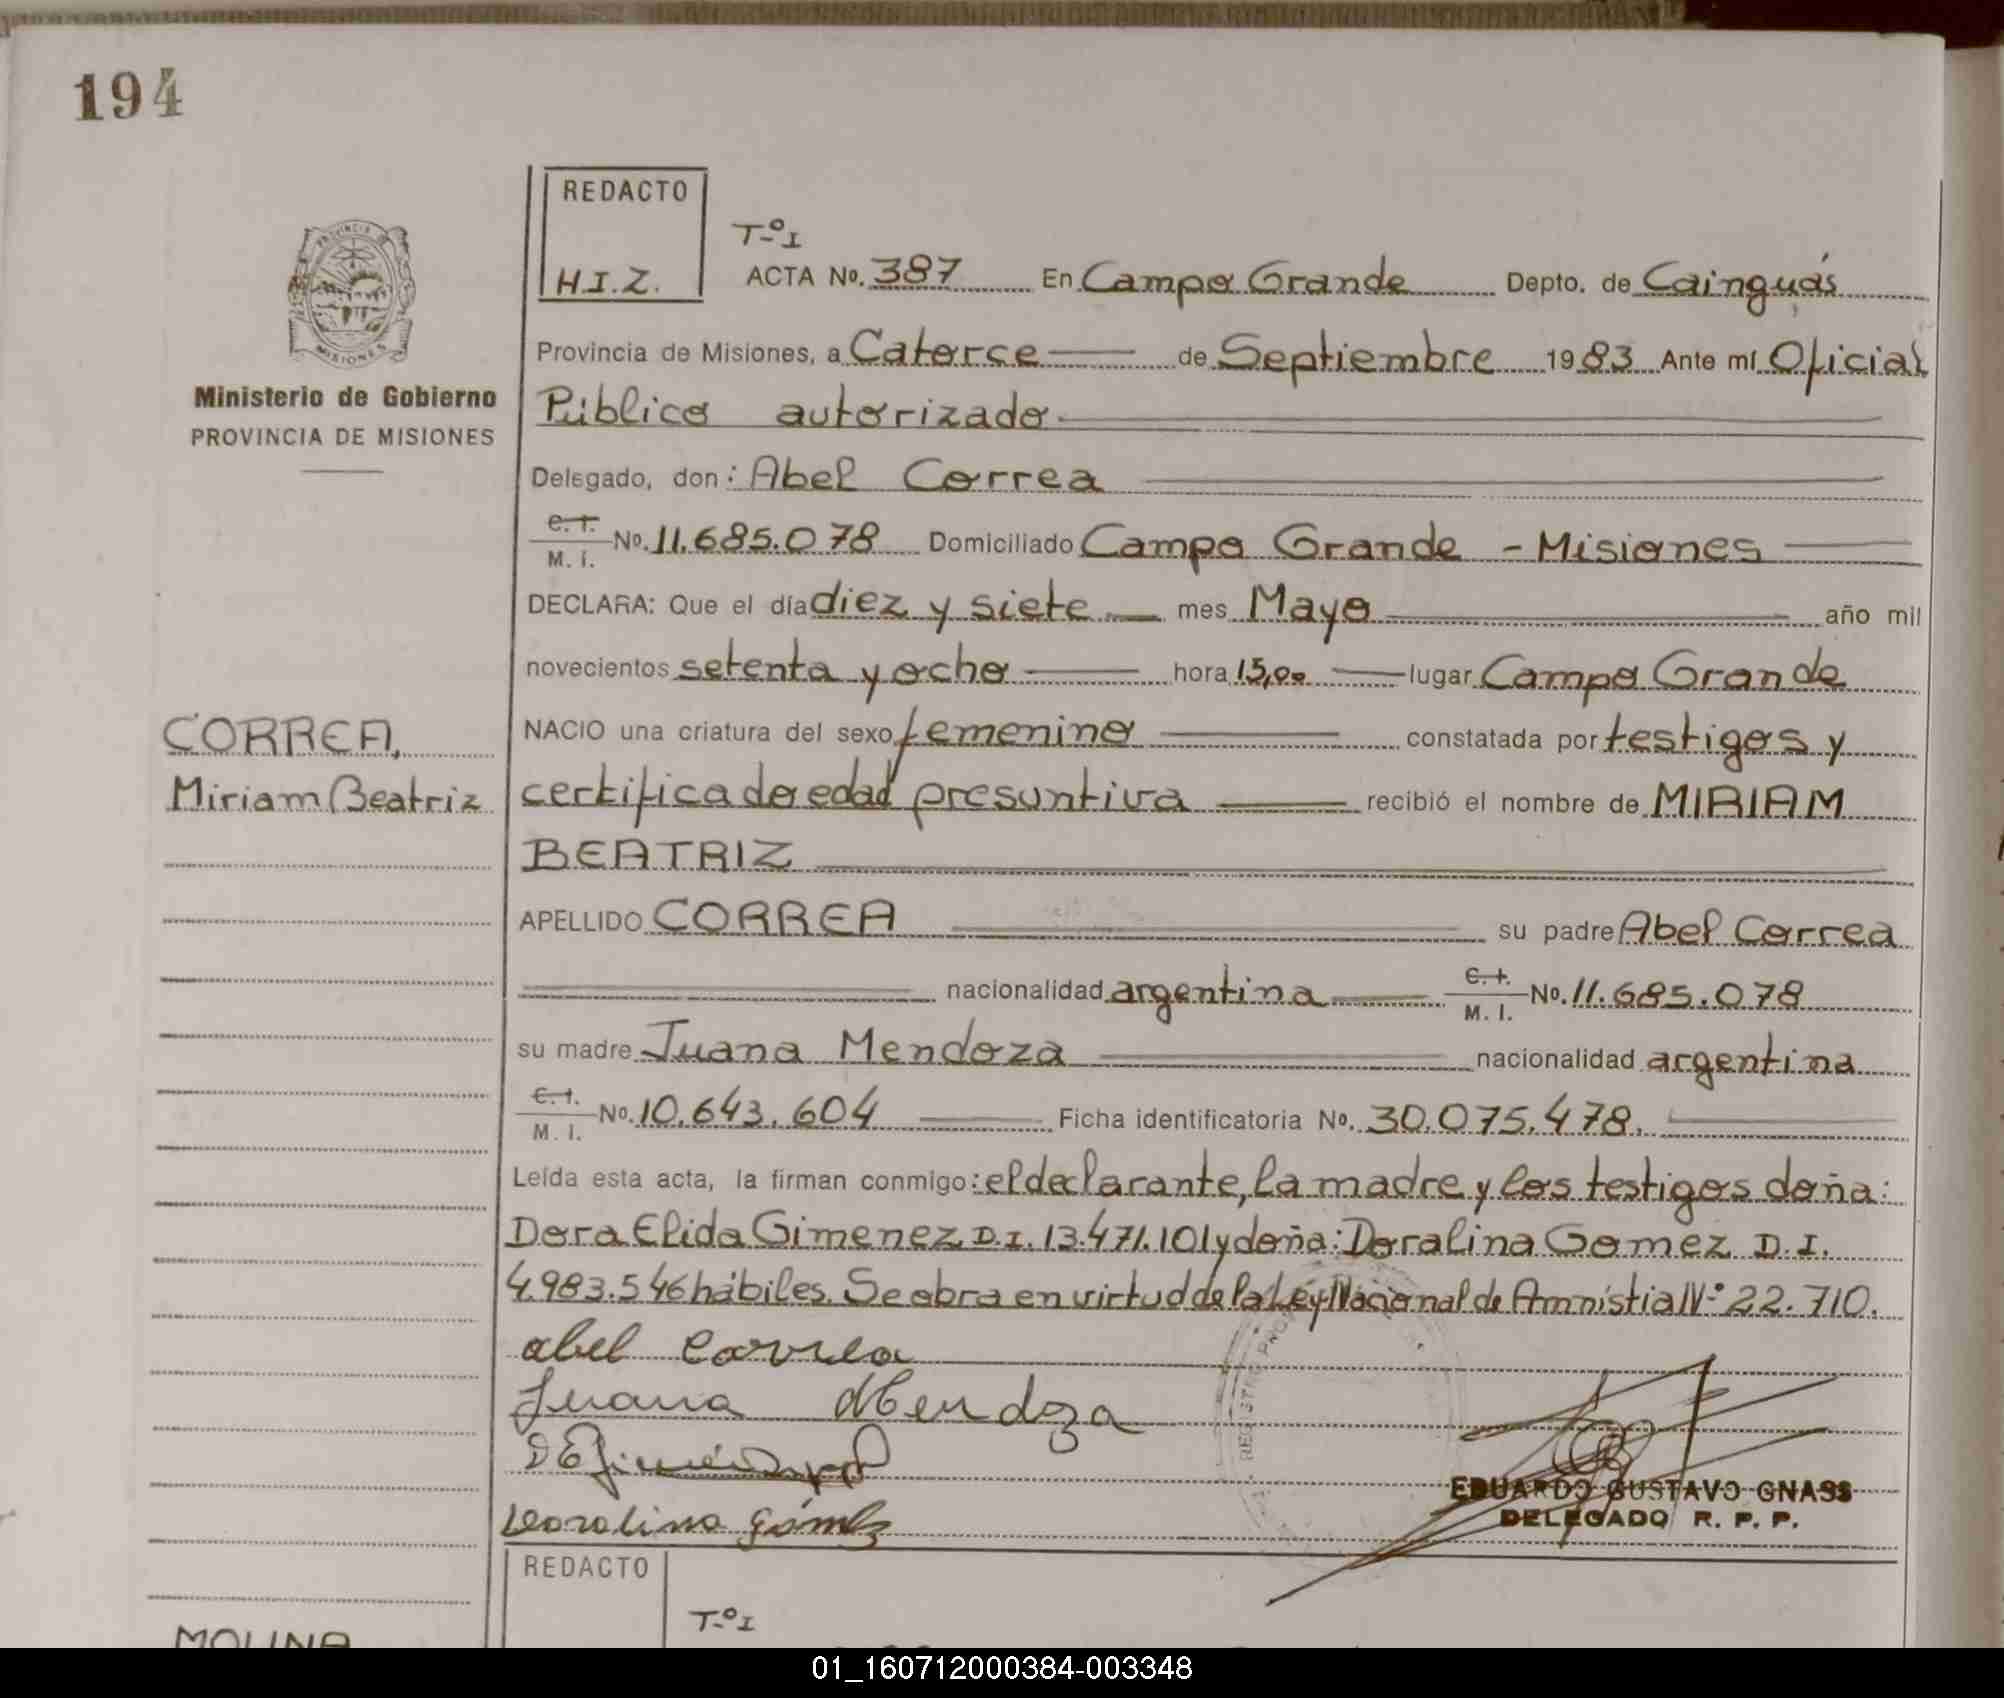 194
REDACTO
H.I.Z.
T-º I
ACTA No. 387 En Campo Grande Depto. de Cainguás
Provincia de Misiones, a Catorce de Septiembre 1983 Ante mí Oficial
Público autorizado
Delegado, don: Abel Correa
C. I. M. I. No. 11.685.078 Domiciliado Campo Grande - Misiones
DECLARA: Que el día diez y siete mes Mayo año mil
novecientos setenta y ocho hora 15,00 lugar Campo Grande
NACIO una criatura del sexo femenino constatada por testigos y
certificado edad presuntiva recibió el nombre de MIRIAM
BEATRIZ
APELLIDO CORREA su padre Abel Correa
nacionalidad argentina C. I. M. I. No. 11.685.078
su madre Juana Mendoza nacionalidad argentina
C. I. M. I. No. 10.643.604 Ficha identificatoria No. 30.075.478.
Leída esta acta, la firman conmigo: el declarante, la madre y los testigos doña:
Dora Elida Gimenez D.I. 13.471.101 y doña: Doralina Gomez D.I.
4.983.546 hábiles. Se obra en virtud de la Ley Nacional de Amnistia Nº 22.710.
abel Correa
Juana Mendoza
Doralina Gómez
EDUARDO GUSTAVO GNASS
DELEGADO R. P. P.
PROVINCIA DE
MISIONES
Ministerio de Gobierno
PROVINCIA DE MISIONES
CORREA,
Miriam Beatriz
REDACTO
T-º I
MOLINA
01_160712000384-003348